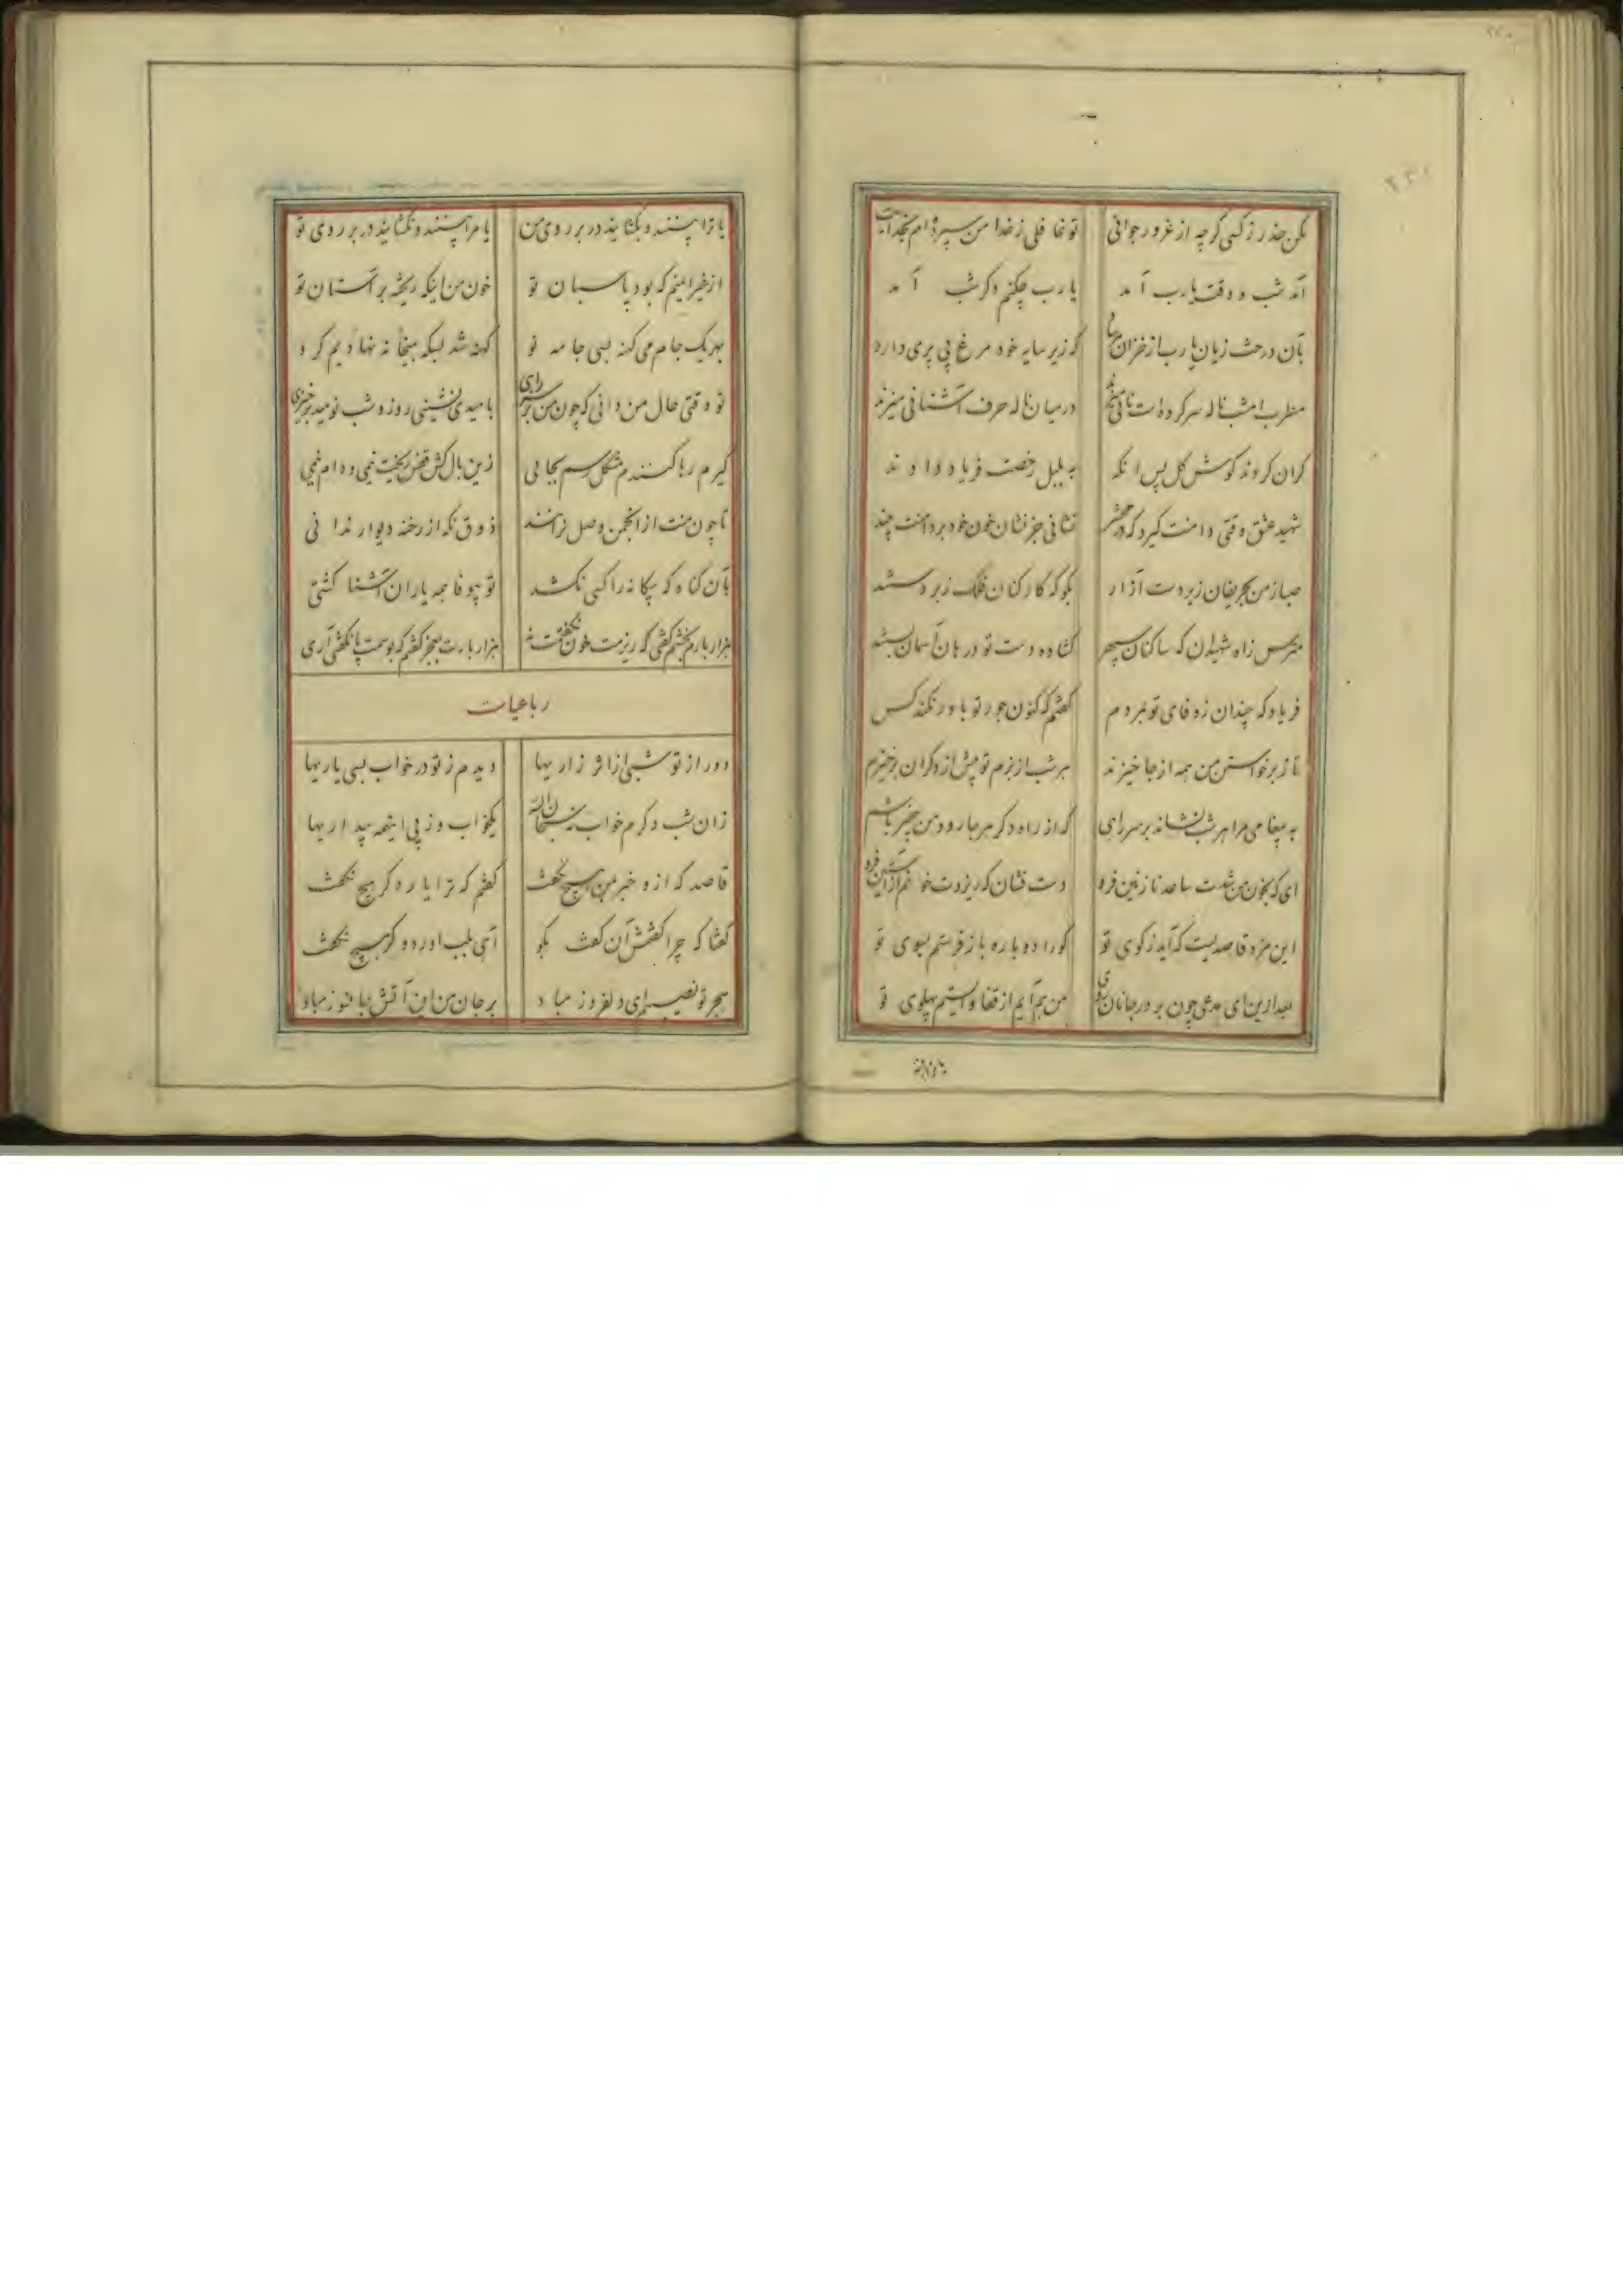 مکن حذر ز کسی گرچه از غرور جوانی تو غافلی ز خدا من سپرده‌ام بخدایت
آمد شب و وقت یارب آمد یارب چکنم دگر شب آمد
بآن درخت زیان یارب از خزان که زیر سایه خود مرغ بی پری دارد
مطرب امشب ناله سر کرده است در میان ناله حرف آشنائی میزند
گران کردند گوش گل پس آنگه به بلبل رخصت فریاد دادند
شهید عشق وقتی دامنت گیرد که در محشر نشانی جز نشان خون خود بر دامنت بیند
صبا ز من بحریفان زیردست آزار بگو که کارکنان فلک زبردستند
مترس ز آه شهیدان که ساکنان سپهر گشاده دست تو در بان آسمان بستند
فریاد که چندان ز وفای تو نمردم گفتم که کنون جور تو باور نکند کس
تا ز برخواستن من همه از جا خیزند هر شب از بزم تو پیش از دگران برخیزم
به پیغامی مرا هر شب نشاند بر سر راهی که از راه دگر هر جا رود من بیخبر باشم
ای که بخون من شدت ساعد نازنین فرو دست فشان که ریزدت خو آستین فرو
این مزد قاصدیست که آید ز کوی تو کو را دوباره باز فرستم بسوی تو
بعد ازین ای مدعی چون بر در جانان من هم آیم از قفا و ایستم پهلوی تو
یا ترا
یا ترا بینند و بگشایند در بر روی من یا مرا بینند و نگشایند در بر روی تو
از غیر اینم که بود پاسبان تو خون من اینکه ریخته بر آستان تو
بهر یک جام می کهنه بسی جامه نو کهنه شد بسکه میخانه نهادیم گرو
تو وقتی حال من دانی که چون من بر سر راهی بامیدی نشینی روز و شب نومید برخیزی
گیرم رها کنندم مشکل رسم بجایی زین بال کش قفس ریخت نیمی و دام نیمی
تا چون منت از انجمن وصل نرانند ذوق نگه از رخنه دیوار ندانی
بآن گناه که بیگانه را کسی نکشد تو بیوفا همه یاران آشنا کشتی
هزار بارم بخشم گفتی که ریزمت خون نگفتمت نه هزار بارت بعجز گفتم که بوسمت پا نگفتی آری
رباعیات
دور از تو شبی از اثر زاریها دیدم ز تو در خواب بسی یاریها
زان شب دگرم خواب سبحان الله یکخواب و ز پی اینهمه بیداریها
قاصد که ازو خبر بمن هیچ نگفت گفتم که ترا یار دگر هیچ نگفت
گفتا که چرا گفتمش آن گفت بگو آهی بلب آورد و دگر هیچ نگفت
هجر تو نصیب ای دلفروز مباد بر جان من این آتش جانسوز مباد